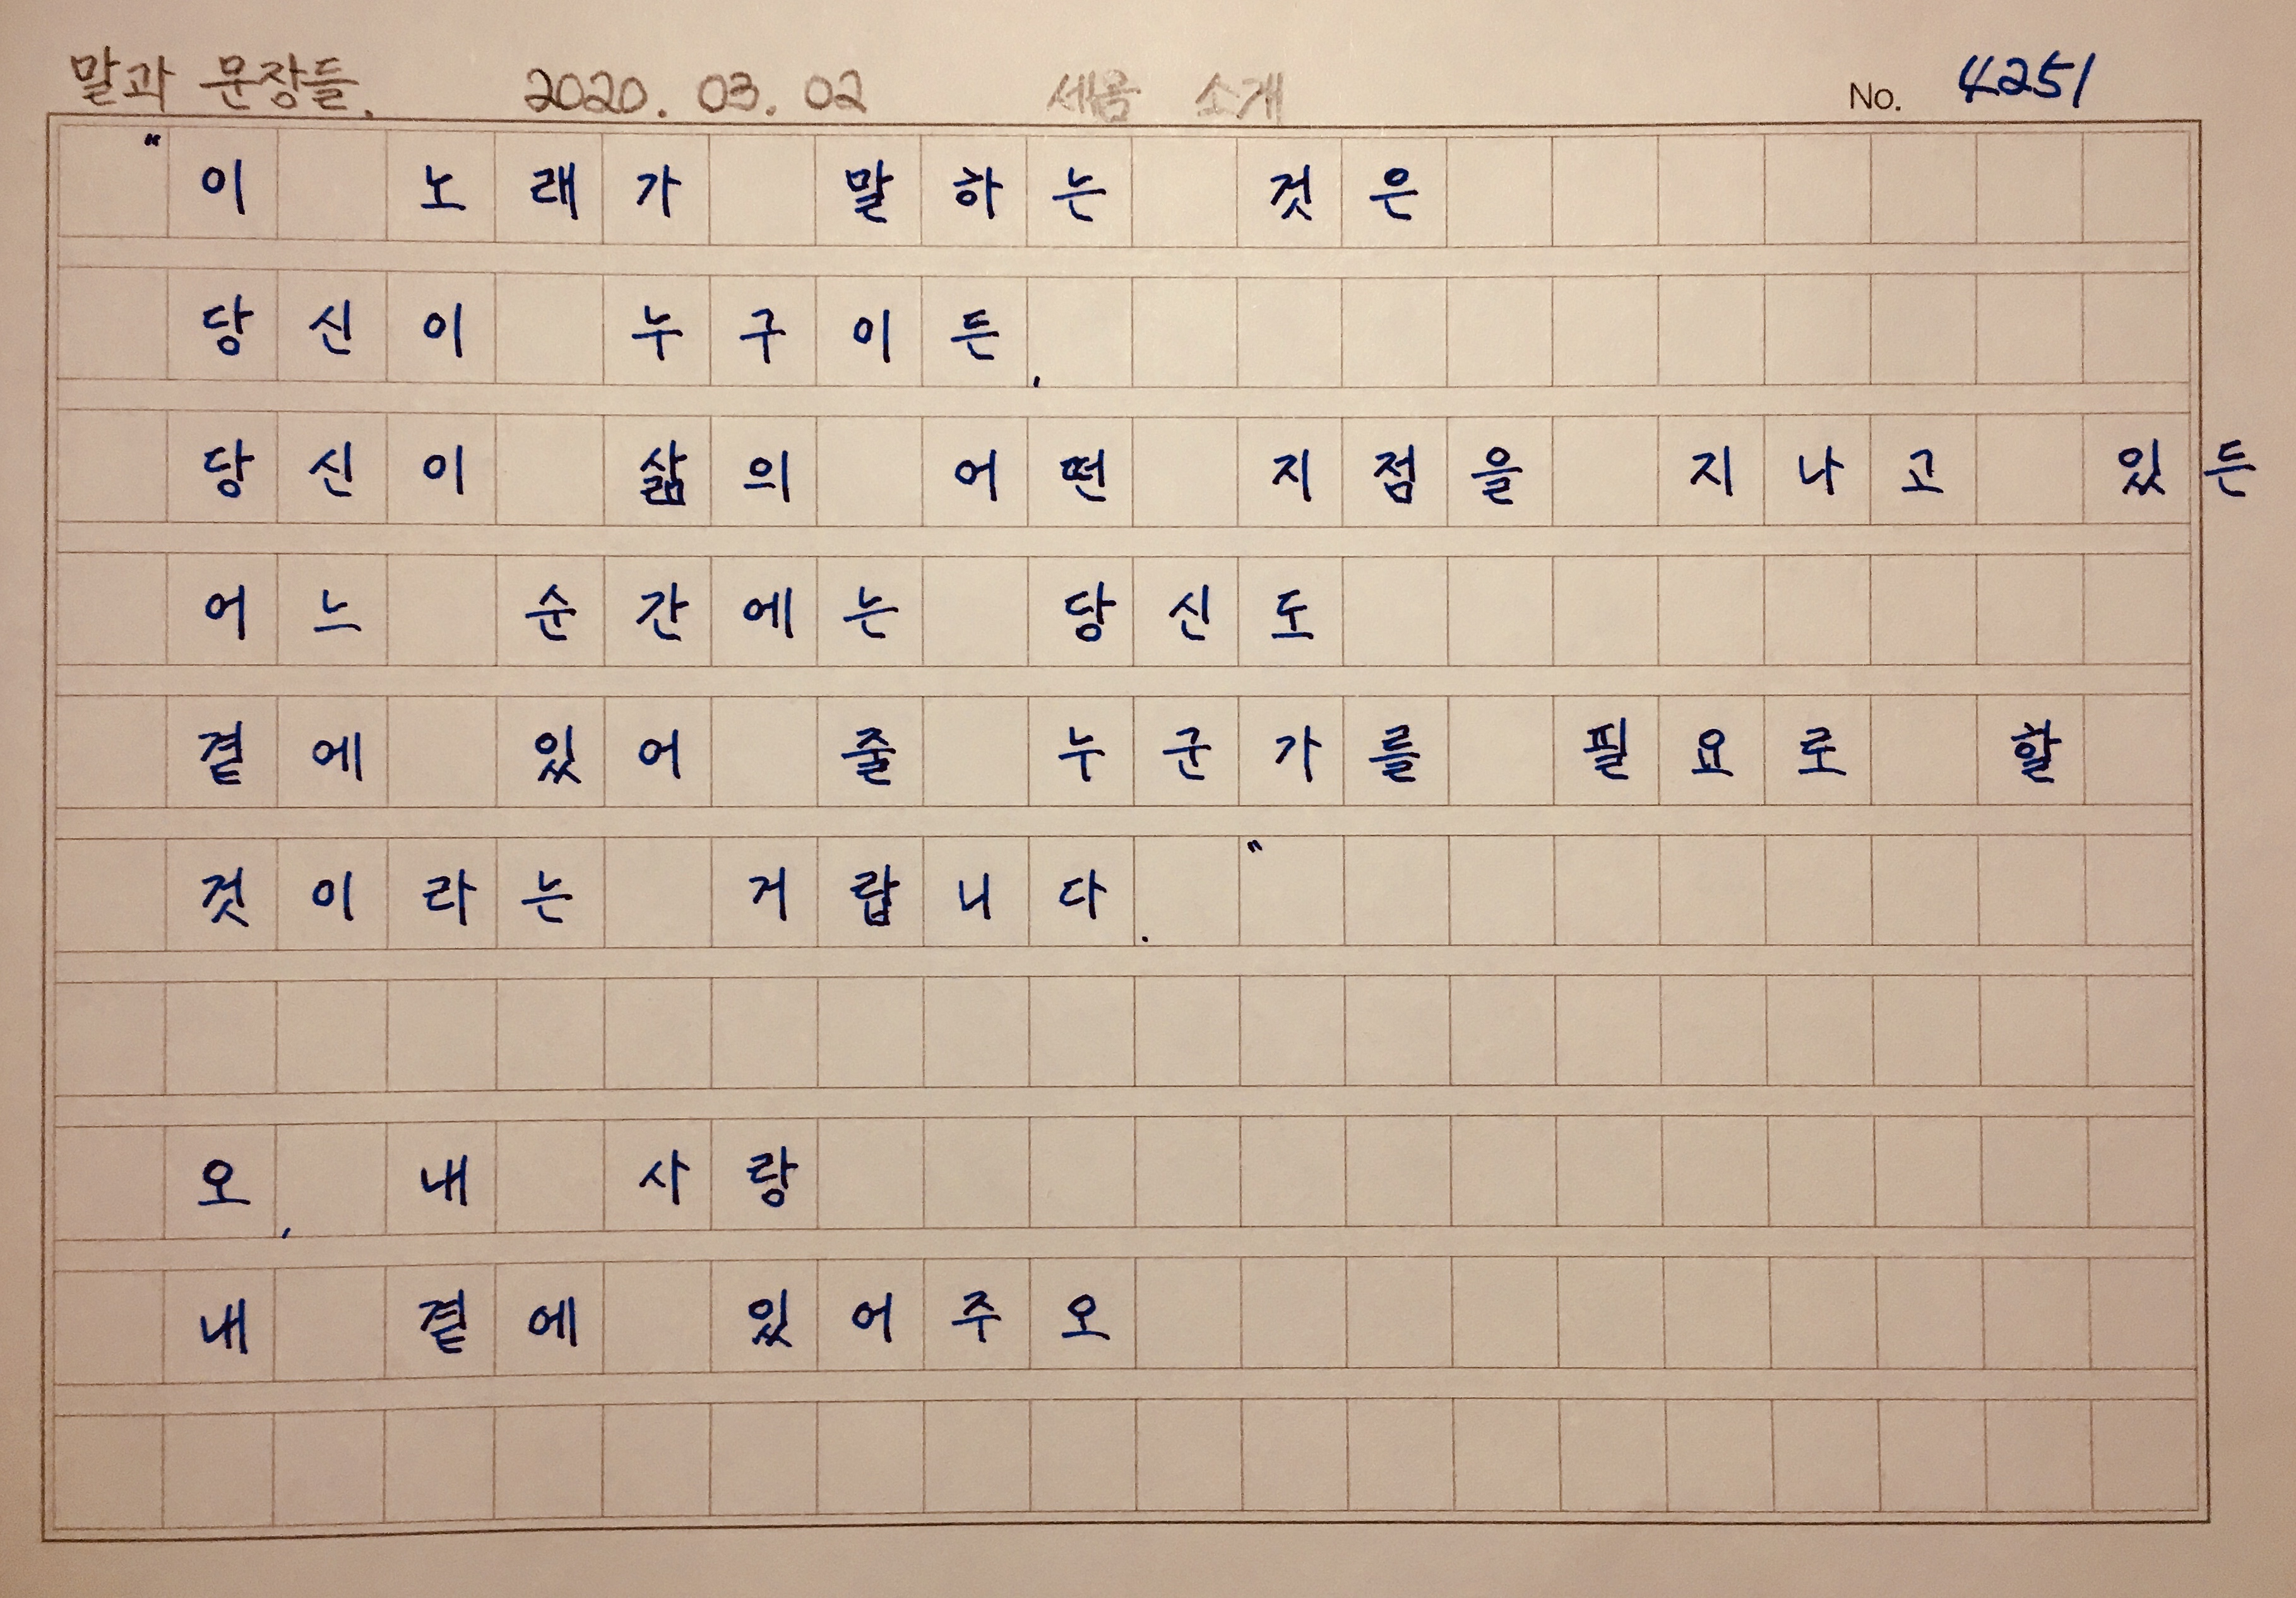 말과 문장들. 2020. 03. 02 세움 소개 No. 4251
"이 노래가 말하는 것은
당신이 누구이든,
당신이 삶의 어떤 지점을 지나고 있든
어느 순간에는 당신도
곁에 있어 줄 누군가를 필요로 할
것이라는 거랍니다."
오, 내 사랑
내 곁에 있어주오